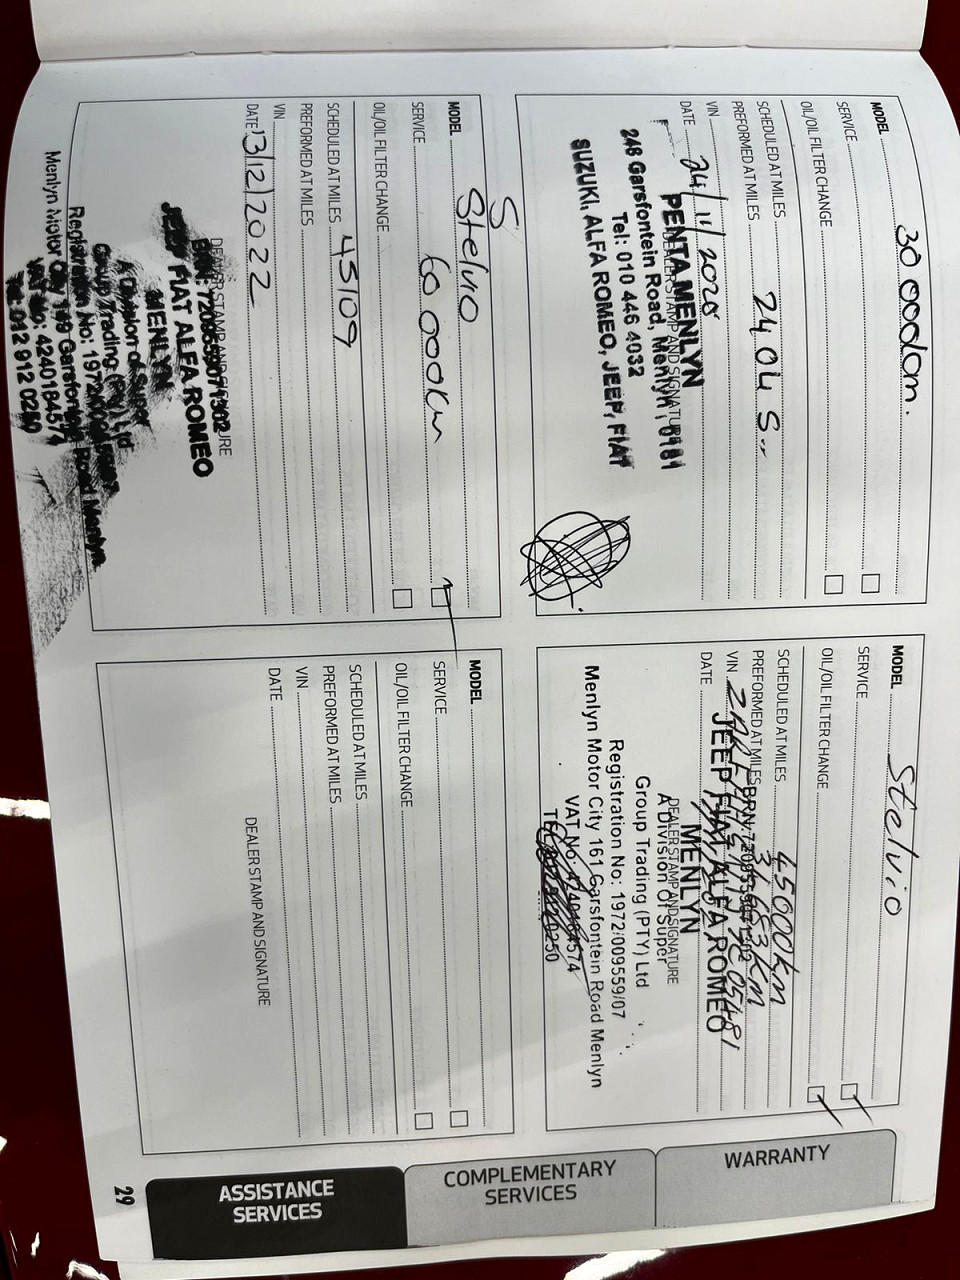 30 000km.
MODEL
SERVICE
OIL/OIL FILTER CHANGE
SCHEDULED AT MILES
PREFORMED AT MILES
VIN
DATE 24/11/2020
DEALER STAMP AND SIGNATURE
PENTA MENLYN
248 Garsfontein Road, Menlyn, 0181
Tel: 010 446 4032
SUZUKI, ALFA ROMEO, JEEP, FIAT
MODEL Stelvio
SERVICE
OIL/OIL FILTER CHANGE
SCHEDULED AT MILES 45000km
PREFORMED AT MILES
VIN
DATE
DEALER STAMP AND SIGNATURE
JEEP FIAT ALFA ROMEO
MENLYN
A Division of Super
Group Trading (PTY) Ltd
Registration No: 1972/009559/07
Menlyn Motor City 161 Garsfontein Road Menlyn
VAT No:
MODEL Stelvio
SERVICE 60 000km
OIL/OIL FILTER CHANGE
SCHEDULED AT MILES 45109
PREFORMED AT MILES
VIN
DATE 13/12/2022
DEALER STAMP AND SIGNATURE
JEEP FIAT ALFA ROMEO
MENLYN
A Division of Super
Group Trading (Pty) Ltd
Registration No: 1972
Menlyn Motor City Garsfontein Road Menlyn.
VAT No:
012 912 0250
MODEL
SERVICE
OIL/OIL FILTER CHANGE
SCHEDULED AT MILES
PREFORMED AT MILES
VIN
DATE
DEALER STAMP AND SIGNATURE
WARRANTY
COMPLEMENTARY
SERVICES
ASSISTANCE
SERVICES
29